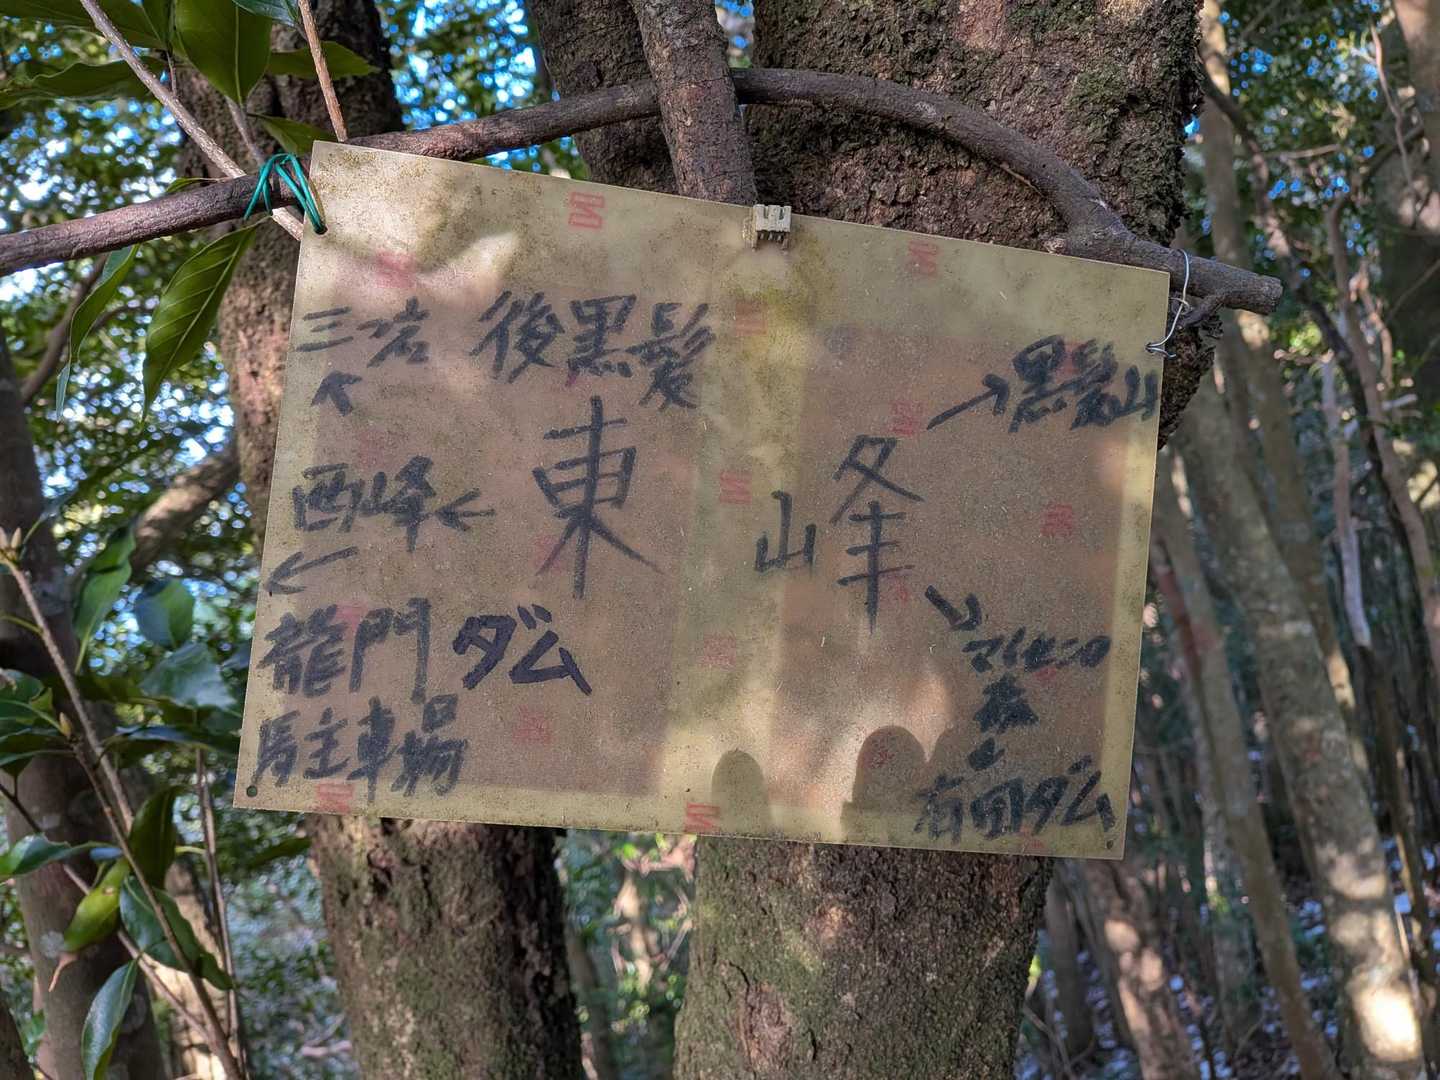 三ツ岩 後黒髪
黒髪山
東峰
西峰
マイセン口
有田ダム
龍門ダム
駐車場